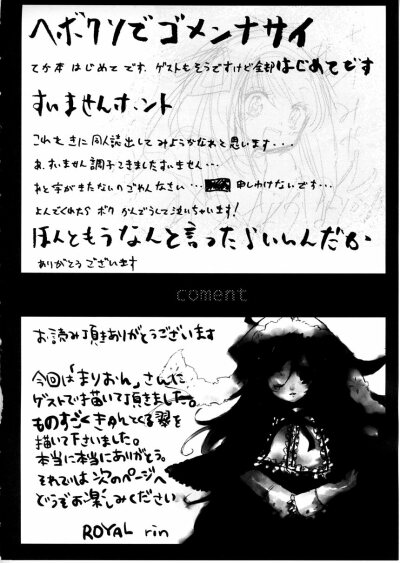 ヘボクソでゴメンナサイ
てか本 はじめて です。ゲストもそうですけど全部はじめてです
すいませんホント
これを きに 同人誌出して みようかなぁと思います・・・
あ、すいません調子こきましたすいません・・・
あと字がきたないのごめんなさい・・・ 申しわけないです・・・
よんでくれたら ボク かんどうして泣いちゃいます!
ほんともうなんと言ったらいいんだか
ありがとう ございます
coment
お読み頂きありがとうございます
今回は「まりおん」さんに
ゲストで描いて頂きました。
ものすごくきゅんとくる翠を
描いて下さいました。
本当に本当にありがとう。
それでは次のページへ
どうぞお楽しみください
ROYAL rin